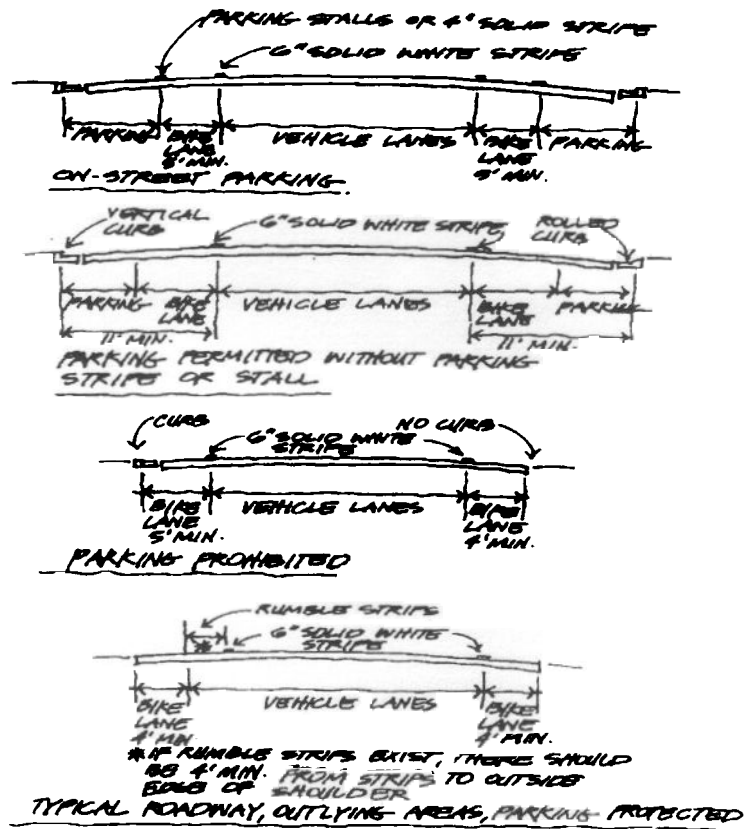 PARKING STALLS OR 4" SOLID STRIPE
6" SOLID WHITE STRIPE
PARKING BIKE LANE 5' MIN. VEHICLE LANES BIKE LANE 5' MIN. PARKING
ON-STREET PARKING.
VERTICAL CURB 6" SOLID WHITE STRIPE ROLLED CURB
PARKING BIKE LANE VEHICLE LANES BIKE LANE PARKING
11' MIN. 11' MIN.
PARKING PERMITTED WITHOUT PARKING
STRIPE OR STALL
CURB 6" SOLID WHITE STRIPE NO CURB
BIKE LANE 5' MIN. VEHICLE LANES BIKE LANE 4' MIN.
PARKING PROHIBITED
RUMBLE STRIPS
* 6" SOLID WHITE STRIPE
BIKE LANE 4' MIN VEHICLE LANES BIKE LANE 4' MIN.
* IF RUMBLE STRIPS EXIST, THERE SHOULD
BE 4' MIN. FROM STRIPS TO OUTSIDE
EDGE OF SHOULDER
TYPICAL ROADWAY, OUTLYING AREAS, PARKING PROTECTED